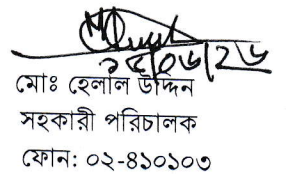 ১৫/০৬/২৬
মোঃ হেলাল উদ্দিন
সহকারী পরিচালক
ফোন: ০২-৪১০১০৩